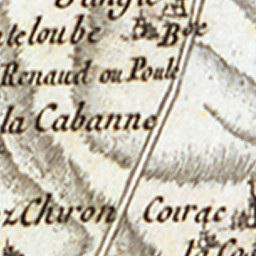 teloube Bde
Renaud ou Poule
la Cabanne
Chiron Coirac
la Co